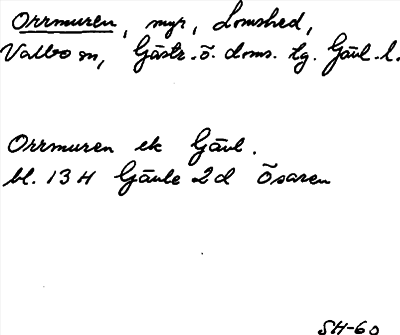 Orrmuren, myr, Lomshed,
Valbo sn, Gästr. ö. doms. tg. Gävl. l.
Orrmuren ek Gävl.
bl. 13 H Gävle 2d Ösaren
SH-60